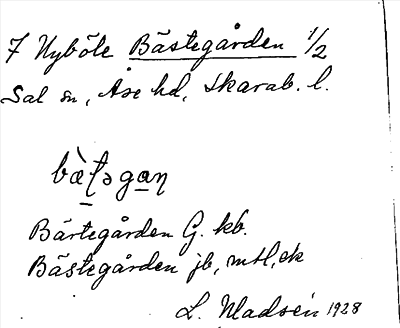 7 Nyböle Bästegården 1/2
Sal sn, Åse hd, Skarab. l.
bæ̀ʈəgaŋ
Bärtegården G. kb.
Bästegården jb, mtl, ek
L. Madsén 1928